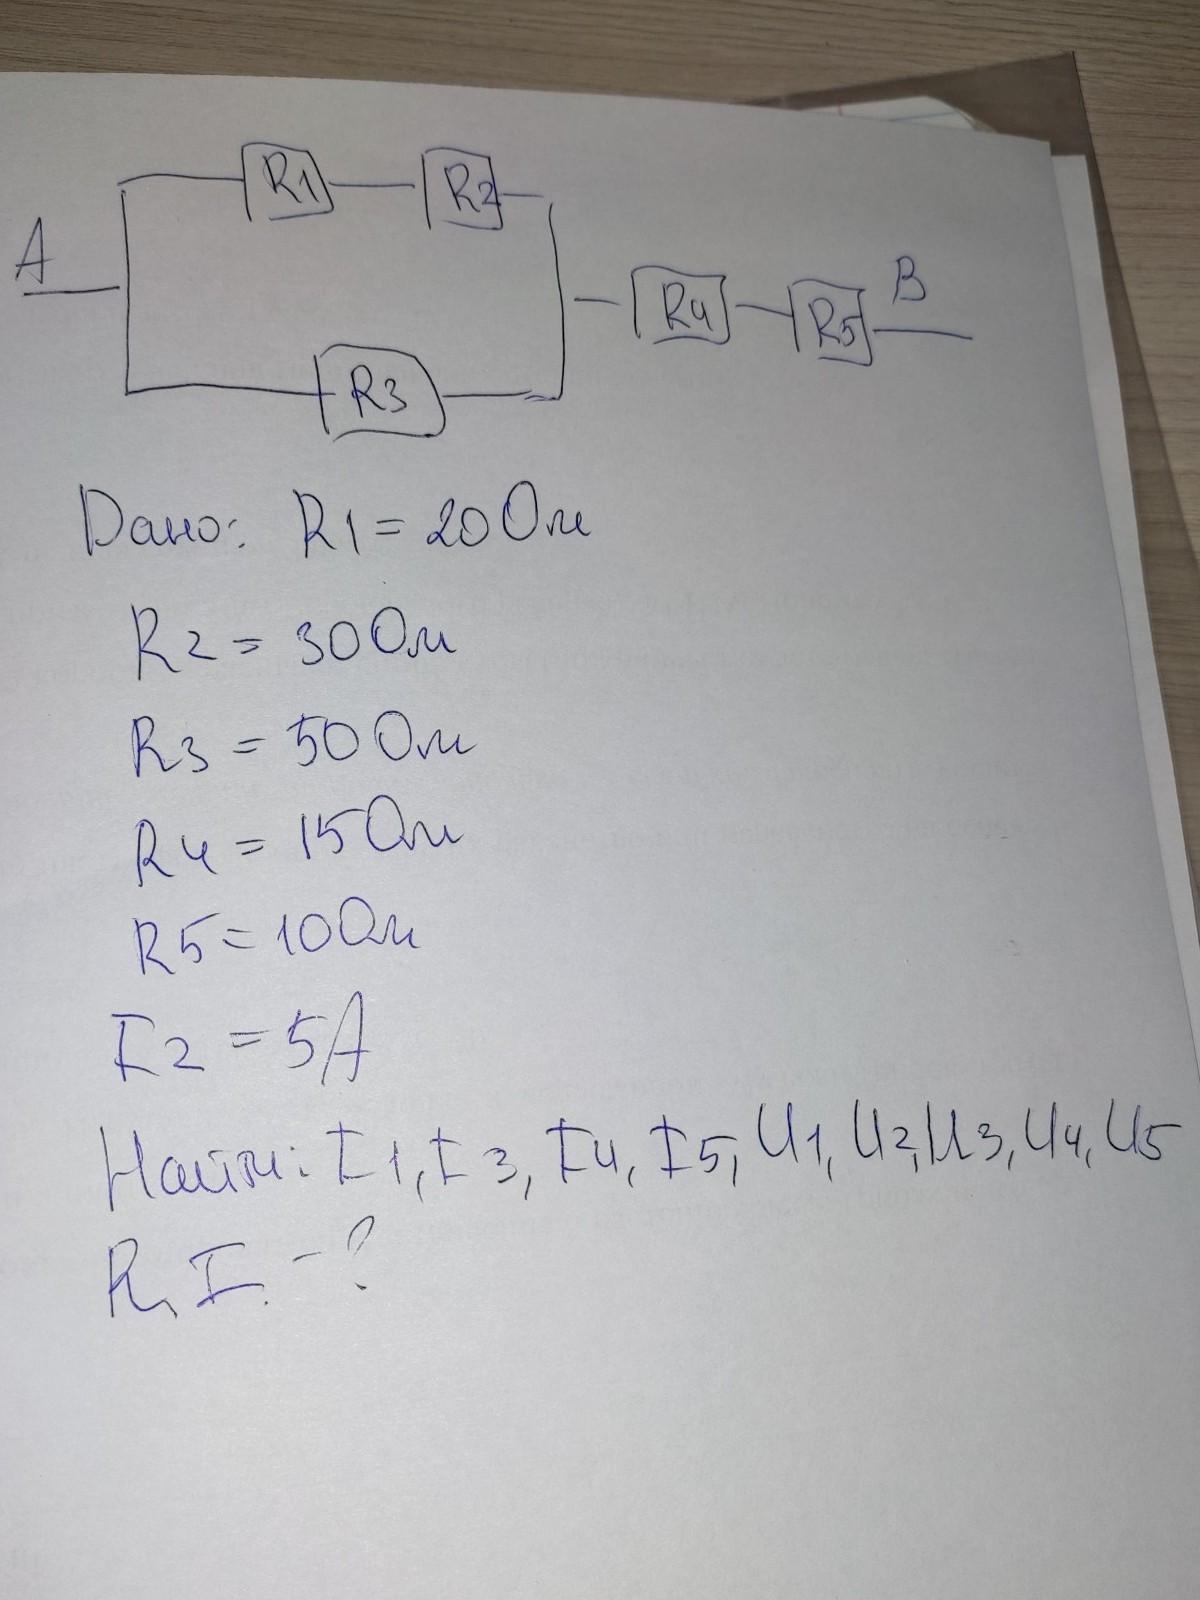 R1 R2
A
R4 R5 B
R3
Дано: R1 = 20 Ом
R2 = 30 Ом
R3 = 50 Ом
R4 = 15 Ом
R5 = 10 Ом
I2 = 5А
Найти: I1, I3, I4, I5, U1, U2, U3, U4, U5
R, I - ?